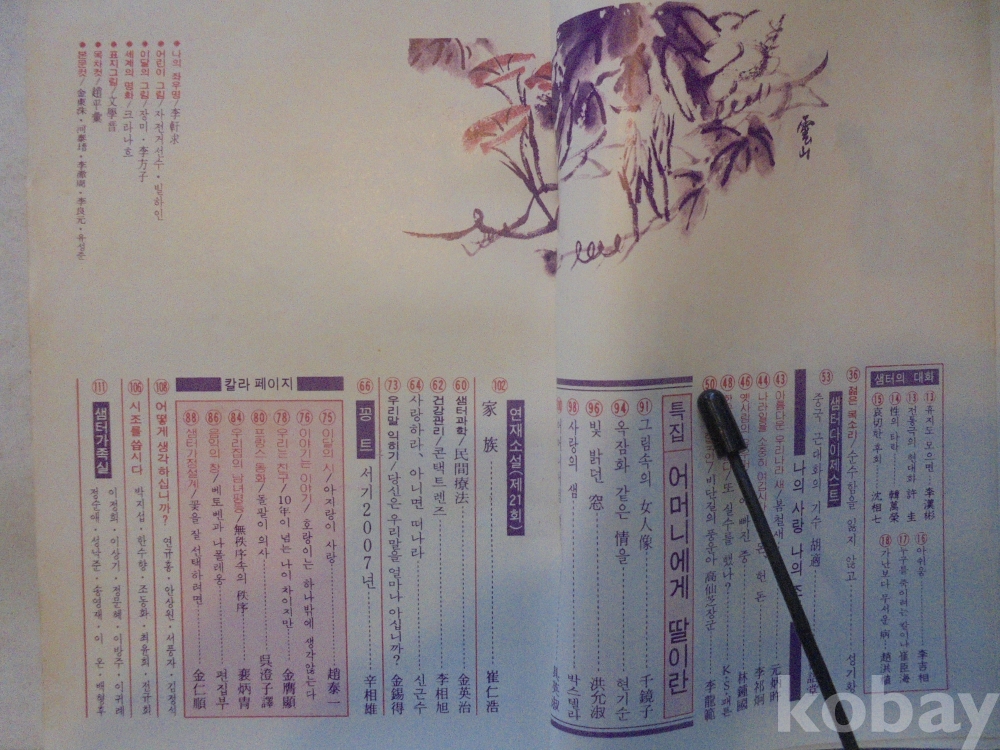 雲山
샘터의 대화
⑬ 유지도 모으면 李漢彬
⑬ 전통극의 현대화 許圭
⑭ 性의 타락 韓萬榮
⑮ 哀切한 후회 沈相七
⑯ 아쉬움 李吉相
⑰ 누구를 죽이려는 말이냐 崔臣海
⑱ 가난보다 무서운 病 趙洪
㊱ 젊은 목소리/순수함을 잃지 않고
샘터다이제스트
53 중국 근대화의 기수 胡適
나의 사랑 나의
㊸ 아름다운 우리나라 새/
㊹ 나라
李祁炯
㊻ 옛사람의
빠진 중 林鍾國
㊽ 또 실수를 했나? K·S·패튼
50
비단길의
高仙芝장군 李龍範
특집 어머니에게 딸이란
91 그림속의 女人像 千鏡子
94 옥잠화 같은 情을 현기순
96 빛 밝던 窓 洪允淑
98 사랑의 샘 박스텔라
연재소설(제21회)
102 家族 崔仁浩
60 샘터과학/民間療法 金英治
62 건강관리/콘택트렌즈 李相旭
64 사랑하라, 아니면 떠나라 신근수
73 우리말 익히기/당신은 우리말을 얼마나 아십니까? 金錫得
66 꽁트 서기 2007년 辛相雄
칼라 페이지
75 이달의 시/아지랑이 사랑 趙泰一
76 이야기는 이야기/호랑이는 하나밖에 생각 않는다
78 우리는 친구/10年이 넘는 나이 차이지만 金膺顯
80 프랑스 동화/돌팔이 의사 吳澄子譯
84 우리집의 남녀평등/無秩序속의 秩序 裵炳胄
86 음악의 창/베토벤과 나폴레옹 편집부
88 샘터가정설계/꽃을 잘 선택하려면 金仁順
108 어떻게 생각하십니까? 연규홍·안상원·서풍자·김정식
106 시조를 씁시다 박지섭·한수향·조동화·최윤희·전규희
111 샘터가족실
이정희·이상기·정문혜·이방주·이귀례
정순애·성낙준·송영재·이 온·백형후
● 나의 좌우명/李軒求
● 어린이 그림/자전거선수·빌하인
● 이달의 그림/장미·李方子
● 세계의 명화/크라나흐
● 표지그림/文學晋
● 목차컷/趙平彙
● 본문컷/金東洙·河泰瑨·李
·李良元·유성준
kobay